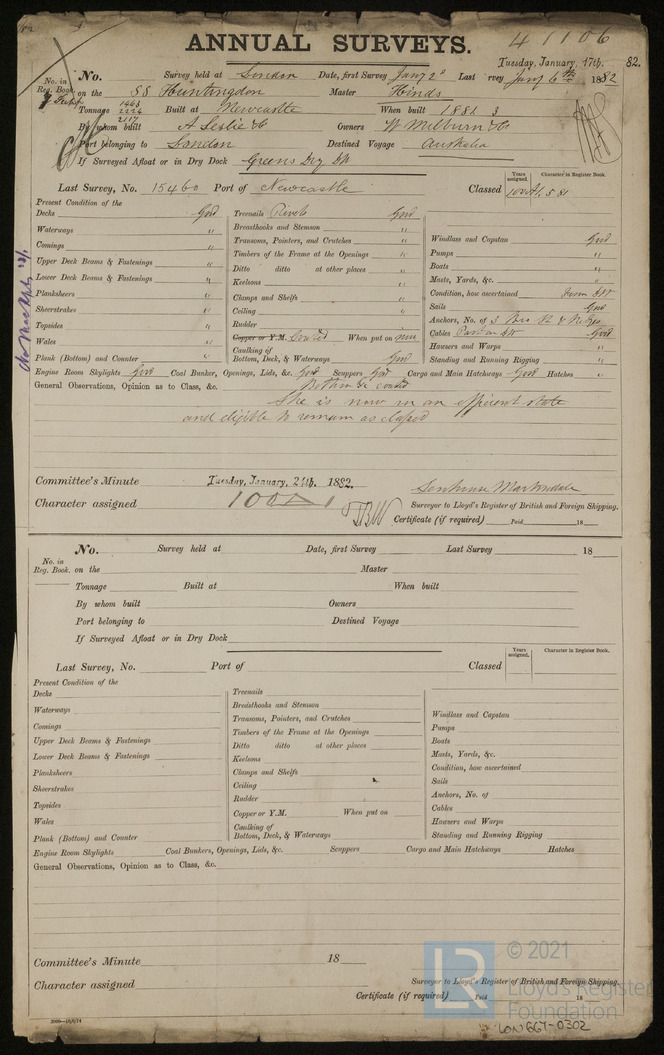 41106
ANNUAL SURVEYS.
Tuesday, January, 17th. 82.
No. in Reg. Book. No. Survey held at London Date, first Survey Jany 2d Last Survey Jany 6th 1882
on the SS Huntingdon Master Hinds
Tonnage 1463 2224 2117 Built at Newcastle When built 1881 3
By whom built A Leslie & Co Owners W Milburn & Co
Port belonging to London Destined Voyage Australia
If Surveyed Afloat or in Dry Dock Greens Dry Dk
Last Survey, No. 15460 Port of Newcastle Classed Years assigned. Character in Register Book. 100A1. 5 81
Present Condition of the
Decks Good Treenails Rivets Good
Waterways " Breasthooks and Stemson "
Comings " Transoms, Pointers, and Crutches " Windlass and Capstan Good
Upper Deck Beams & Fastenings " Timbers of the Frame at the Openings " Pumps "
Lower Deck Beams & Fastenings " Ditto ditto at other places " Boats "
Planksheers " Keelsons " Masts, Yards, &c. "
Sheerstrakes " Clamps and Shelfs " Condition, how ascertained from Dk
Topsides " Ceiling " Sails Good
Wales " Rudder " Anchors, No. of 3
Copper or Y.M. Coated When put on now Cables Good
Plank (Bottom) and Counter " Caulking of Bottom, Deck, & Waterways Good Hawsers and Warps "
Standing and Running Rigging "
Engine Room Skylights Good Coal Bunker, Openings, Lids, &c. Good Scuppers Good Cargo and Main Hatchways Good Hatches "
General Observations, Opinion as to Class, &c. Bottom coated
She is now in an efficient state
and eligible to remain as classed
Committee's Minute Tuesday, January, 24th. 1882.
Character assigned 100A1
Surveyor to Lloyd's Register of British and Foreign Shipping.
Certificate (if required) Paid 18
No. Survey held at Date, first Survey Last Survey 18
No. in Reg. Book. on the Master
Tonnage Built at When built
By whom built Owners
Port belonging to Destined Voyage
If Surveyed Afloat or in Dry Dock
Last Survey, No. Port of Classed Years assigned. Character in Register Book.
Present Condition of the
Decks Treenails
Waterways Breasthooks and Stemson
Comings Transoms, Pointers, and Crutches Windlass and Capstan
Upper Deck Beams & Fastenings Timbers of the Frame at the Openings Pumps
Lower Deck Beams & Fastenings Ditto ditto at other places Boats
Planksheers Keelsons Masts, Yards, &c.
Sheerstrakes Clamps and Shelfs Condition, how ascertained
Topsides Ceiling Sails
Wales Rudder Anchors, No. of
Copper or Y.M. When put on Cables
Plank (Bottom) and Counter Caulking of Bottom, Deck, & Waterways Hawsers and Warps
Standing and Running Rigging
Engine Room Skylights Coal Bunkers, Openings, Lids, &c. Scuppers Cargo and Main Hatchways Hatches
General Observations, Opinion as to Class, &c.
Committee's Minute 18
Character assigned
Surveyor to Lloyd's Register of British and Foreign Shipping.
Certificate (if required) Paid 18
LR © 2021
Lloyd's Register
Foundation
LON667-0302